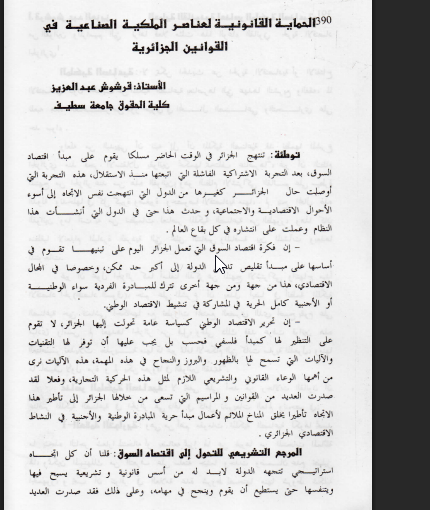 390
الحماية القانونية لعناصر الملكية الصناعية في
القوانين الجزائرية
الأستاذ: قرشوش عبد العزيز
كلية الحقوق جامعة سطيف
توطئة: تنتهج الجزائر في الوقت الحاضر مسلكا يقوم على مبدأ اقتصاد
السوق، بعد التجربة الاشتراكية الفاشلة التي اتبعتها منذ الاستقلال، هذه التجربة التي
أوصلت حال الجزائر كغيرها من الدول التي انتهجت نفس الاتجاه إلى أسوء
الأحوال الاقتصادية والاجتماعية، و حدث هذا حتى في الدول التي أنشأت هذا
النظام وعملت على انتشاره في كل بقاع العالم.
- إن فكرة اقتصاد السوق التي تعمل الجزائر اليوم على تبنيها تقوم في
أساسها على مبدأ تقليص الدولة إلى أكبر حد ممكن، وخصوصا في المجال
الاقتصادي، هذا من جهة ومن جهة أخرى تترك للمبادرة الفردية سواء الوطنية
أو الأجنبية كامل الحرية في المشاركة في تنشيط الاقتصاد الوطني.
- إن تحرير الاقتصاد الوطني كسياسة عامة تحولت إليها الجزائر، لا تقوم
على التنظير لها كمبدأ فلسفي فحسب بل يجب عليها أن توفر لها التقنيات
والآليات التي تسمح لها بالظهور والبروز والنجاح في هذه المهمة، هذه الآليات نرى
من أهمها الوعاء القانوني والتشريعي اللازم لمثل هذه الحركية التجارية، وفعلا لقد
صدرت العديد من القوانين و المراسيم التي تسعى من خلالها الجزائر إلى تأطير هذا
الاتجاه تأطيرا يخلق المناخ الملائم لأعمال مبدأ حرية المبادرة الوطنية والأجنبية في النشاط
الاقتصادي الجزائري.
المرجع التشريعي للتحول إلى اقتصاد السوق: قلنا أن كل اتجاه
استراتيجي تتجهه الدولة لابد له من أسس قانونية و تشريعية يسبح فيها
ويتنفسها حتى يستطيع أن يقوم وينجح في مهامه، وعلى ذلك فقد صدرت العديد